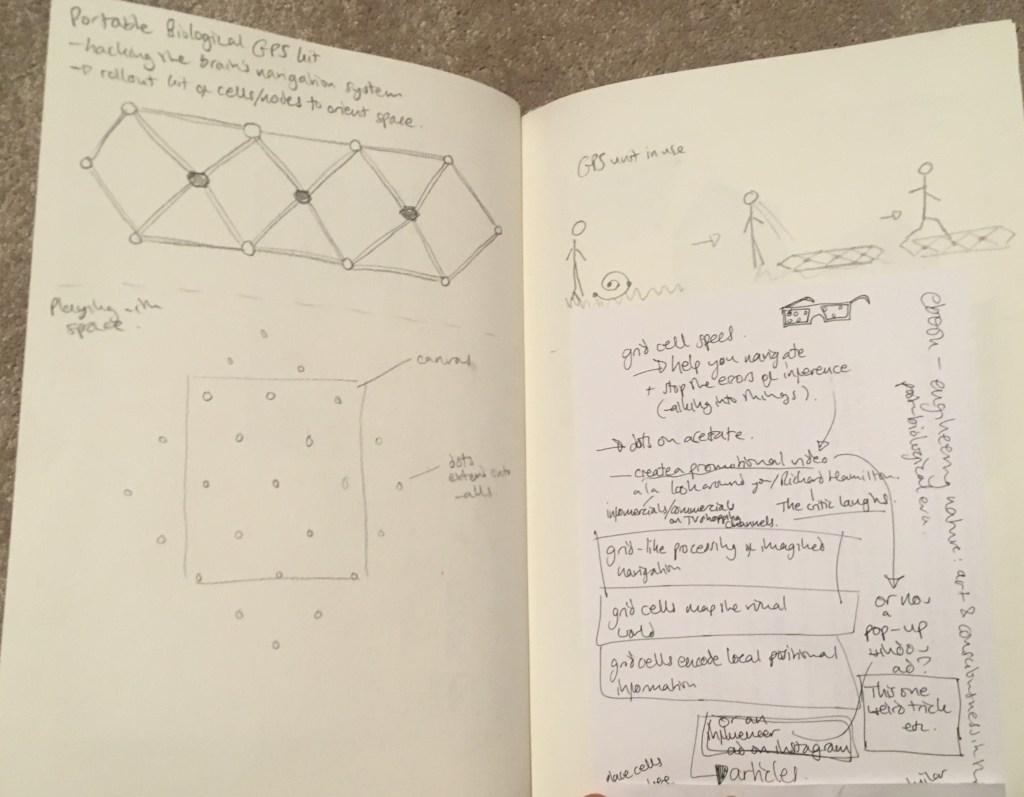 Portable Biological GPS kit
- hacking the brain's navigation system
→ rollout kit of cells/nodes to orient space.
Playing with
space.
canvas
dots
extend onto
walls
GPS unit in use
grid cell specs.
→ help you navigate
+ stop the errors of inference
(walking into things).
→ dots on acetate.
- create a promotional video
a la look around you/Richard Hamilton.
infomercials/commercials
on TV shopping
channels.
The critic laughs.
grid-like processing of imagined
navigation
grid cells map the visual
world
grid cells encode local positional
information
or an
influencer
ad on instagram
articles.
or now
a
pop-up
window
ad?
This one
weird trick
etc.
ebook - engineering nature: art & consciousness in
post-biological era.
place cells